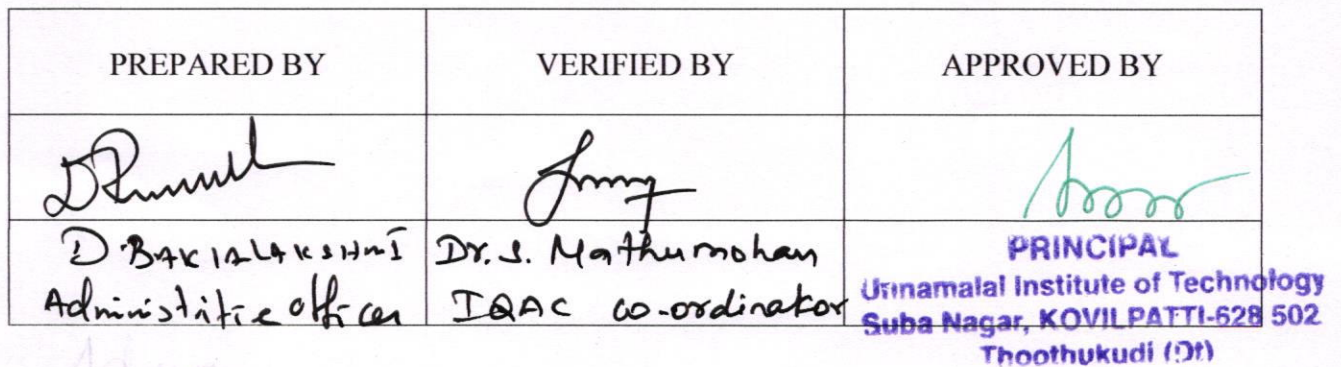 PREPARED BY VERIFIED BY APPROVED BY
D BAKIALAKSHMI
Administritie officer
Dr. S. Mathumohan
IQAC co-ordinator
PRINCIPAL
Unnamalai Institute of Technology
Suba Nagar, KOVILPATTI-628 502
Thoothukudi (Dt)